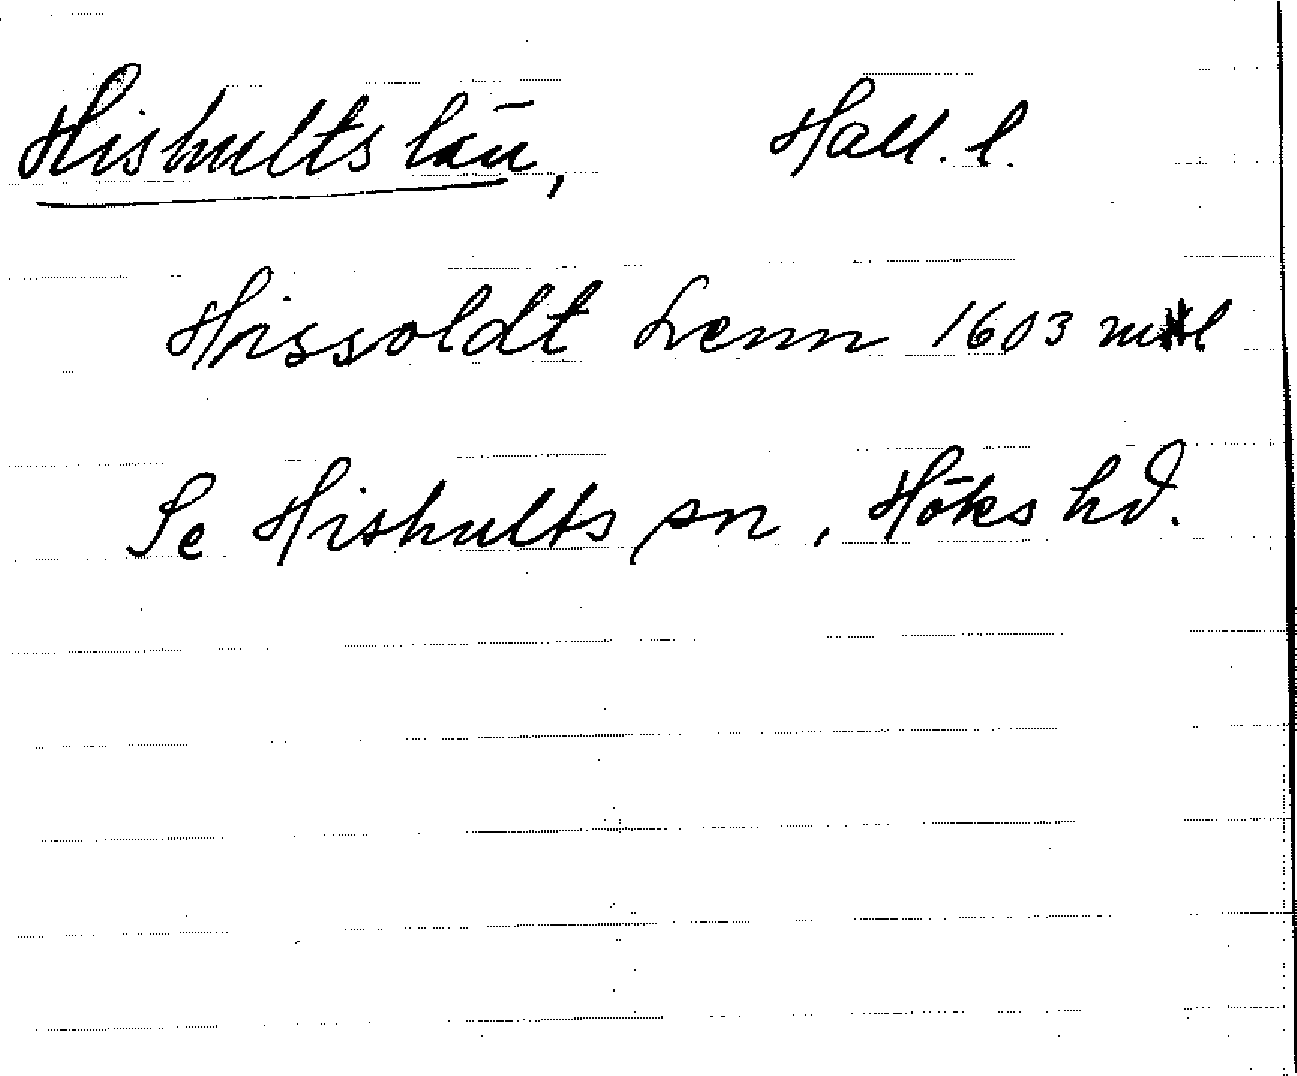 Hishults län, Hall. l.
Hissoldt Lenn 1603 mtl
Se Hishults sn, Höks hd.